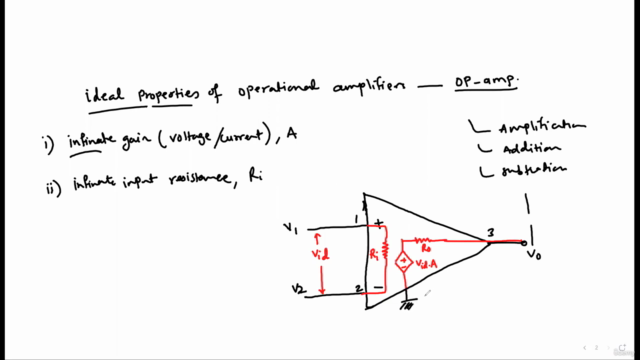 ideal properties of operational amplifier — OP-amp.
i) infinate gain (voltage/current), A
ii) infinate input resistance, Ri
Amplification
Addition
subtration
V1
1
+
Vid
Ri
Ro
3
+
-
Vid.A
Vo
V2
2
-